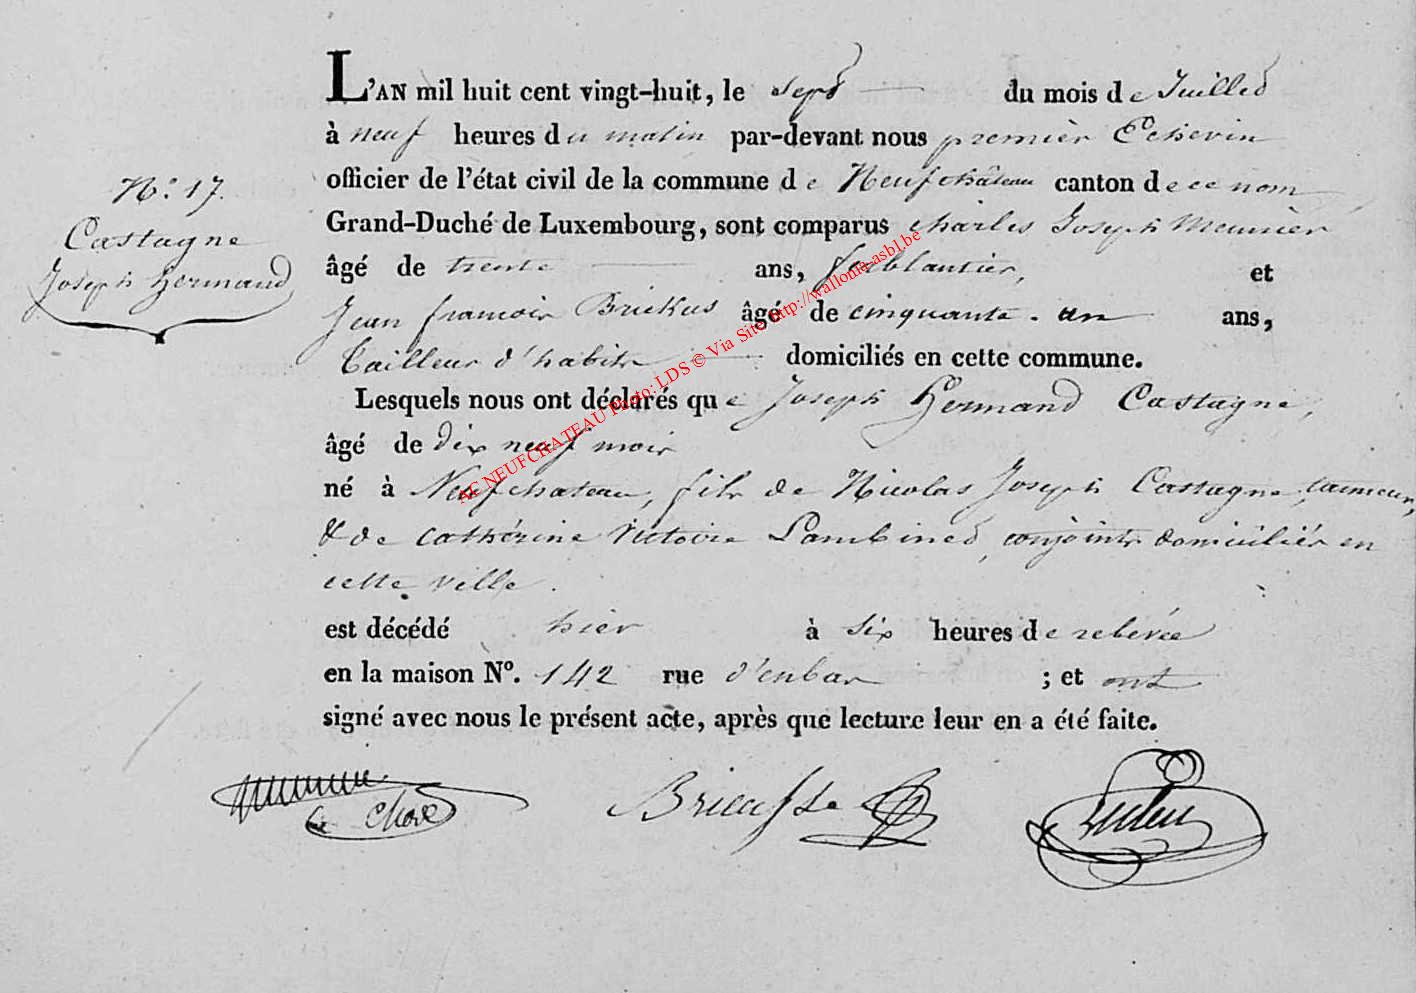 L'AN mil huit cent vingt-huit, le sept du mois de Juillet
à neuf heures du matin par-devant nous premièr Echevin
officier de l'état civil de la commune de Neufchâteau canton de ce nom
Grand-Duché de Luxembourg, sont comparus charles Joseph Meunièr
âgé de trente ans, ferblantier, et
Jean francois Brickus âgé de cinquante-un ans,
tailleur d'habits domiciliés en cette commune.
Lesquels nous ont déclarés que Joseph Hermand Castagne,
âgé de dix neuf mois
né à Neufchateau, fils de Nicolas Joseph Castagne, tanneur,
& de cathérine Victoire Lambinet, conjoints domiciliés en
cette ville.
est décédé hier à six heures de relevée
en la maison N°. 142 rue d'enbas ; et ont
signé avec nous le présent acte, après que lecture leur en a été faite.
N°. 17.
Castagne
Joseph Hermand
AC NEUFCHATEAU Photo: LDS © Via Site http://wallonia-asbl.be